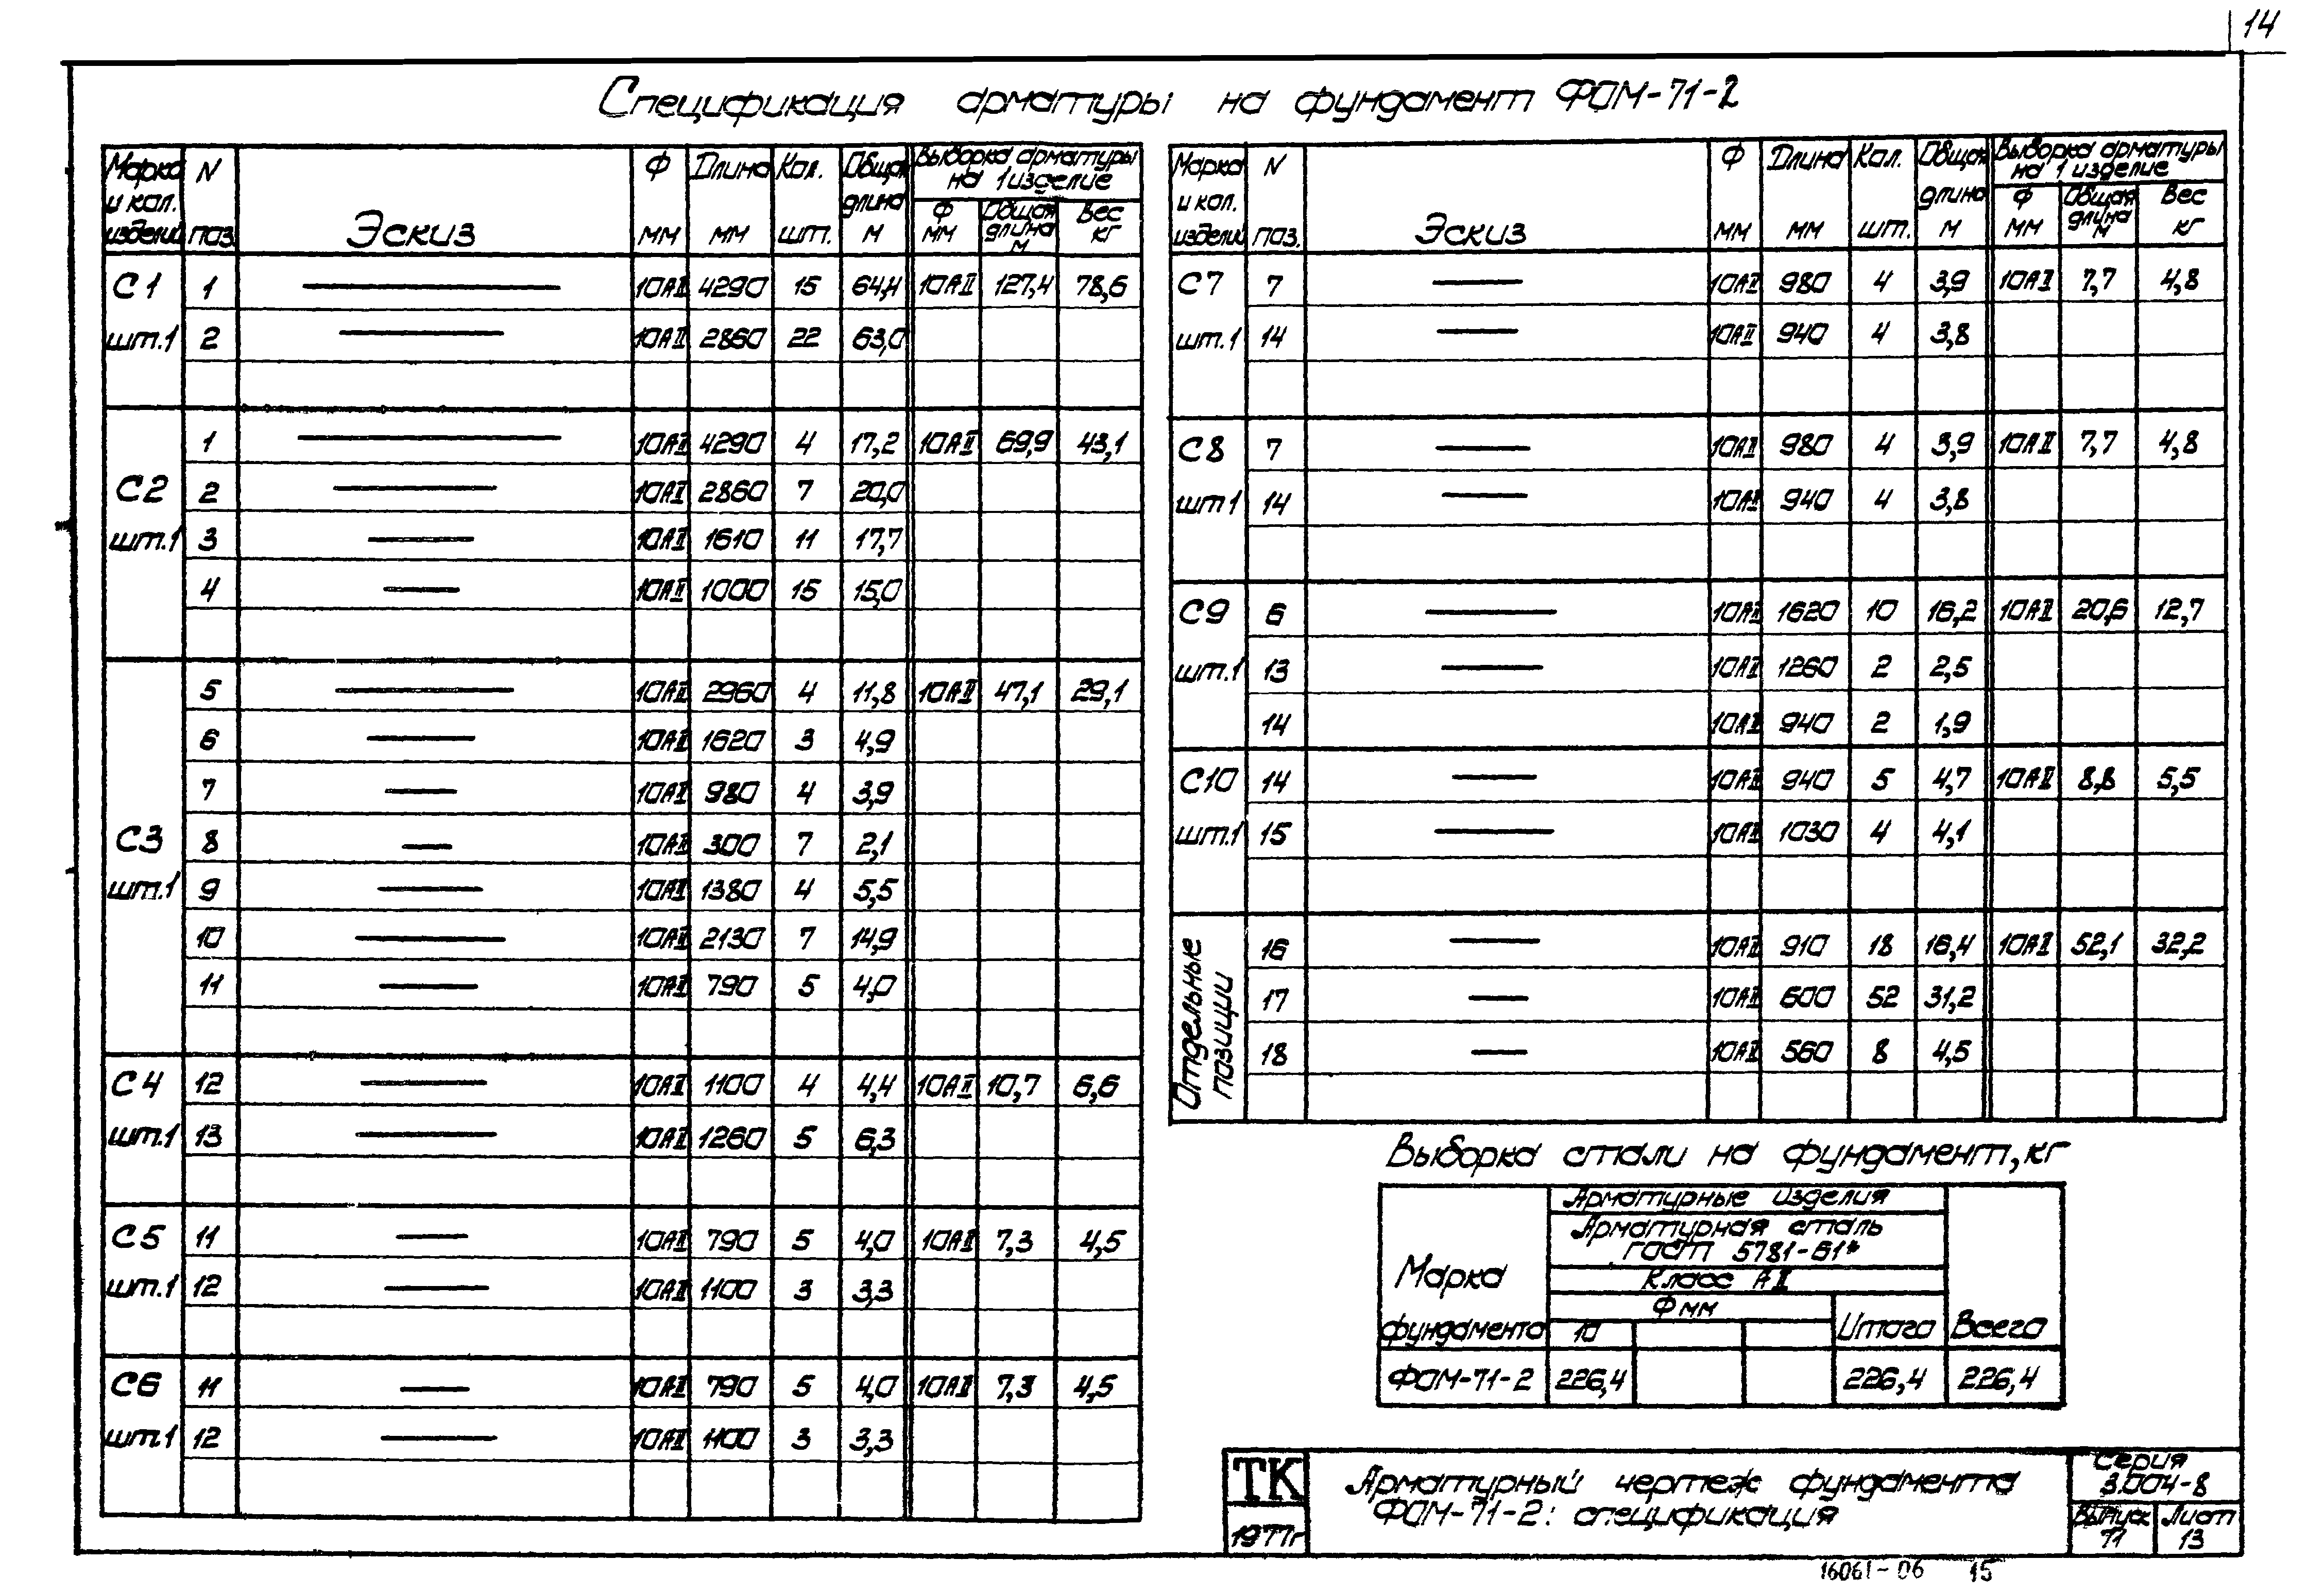 14
Спецификация арматуры на фундамент ФОМ-71-2
Марка и кол. изделий | N поз. | Эскиз | Ф мм | Длина мм | Кол. шт. | Общая длина м | Выборка арматуры на 1 изделие
Ф мм | Общая длина м | Вес кг
С1 1 10АII 4290 15 64,4 10АII 127,4 78,6
шт.1 2 10АII 2860 22 63,0
1 10АII 4290 4 17,2 10АII 69,9 43,1
С2 2 10АII 2860 7 20,0
шт.1 3 10АII 1610 11 17,7
4 10АII 1000 15 15,0
5 10АII 2960 4 11,8 10АII 47,1 29,1
6 10АII 1620 3 4,9
7 10АII 980 4 3,9
С3 8 10АII 300 7 2,1
шт.1 9 10АII 1380 4 5,5
10 10АII 2130 7 14,9
11 10АII 790 5 4,0
С4 12 10АII 1100 4 4,4 10АII 10,7 6,6
шт.1 13 10АII 1260 5 6,3
С5 11 10АII 790 5 4,0 10АII 7,3 4,5
шт.1 12 10АII 1100 3 3,3
С6 11 10АII 790 5 4,0 10АII 7,3 4,5
шт.1 12 10АII 1100 3 3,3
Марка и кол. изделий | N поз. | Эскиз | Ф мм | Длина мм | Кол. шт. | Общая длина м | Выборка арматуры на 1 изделие
Ф мм | Общая длина м | Вес кг
С7 7 10АII 980 4 3,9 10АII 7,7 4,8
шт.1 14 10АII 940 4 3,8
С8 7 10АII 980 4 3,9 10АII 7,7 4,8
шт1 14 10АII 940 4 3,8
С9 6 10АII 1620 10 16,2 10АII 20,6 12,7
шт.1 13 10АII 1260 2 2,5
14 10АII 940 2 1,9
С10 14 10АII 940 5 4,7 10АII 8,8 5,5
шт.1 15 10АII 1030 4 4,1
Отдельные позиции
16 10АII 910 18 16,4 10АII 52,1 32,2
17 10АII 600 52 31,2
18 10АII 560 8 4,5
Выборка стали на фундамент, кг
Марка фундамента
Арматурные изделия
Арматурная сталь
ГОСТ 5781-61*
Класс АII
Ф мм
10 Итого Всего
ФОМ-71-2 226,4 226,4 226,4
ТК
1977г
Арматурный чертеж фундамента
ФОМ-71-2: спецификация
Серия
3.004-8
Выпуск Лист
71 13
16061-06 15